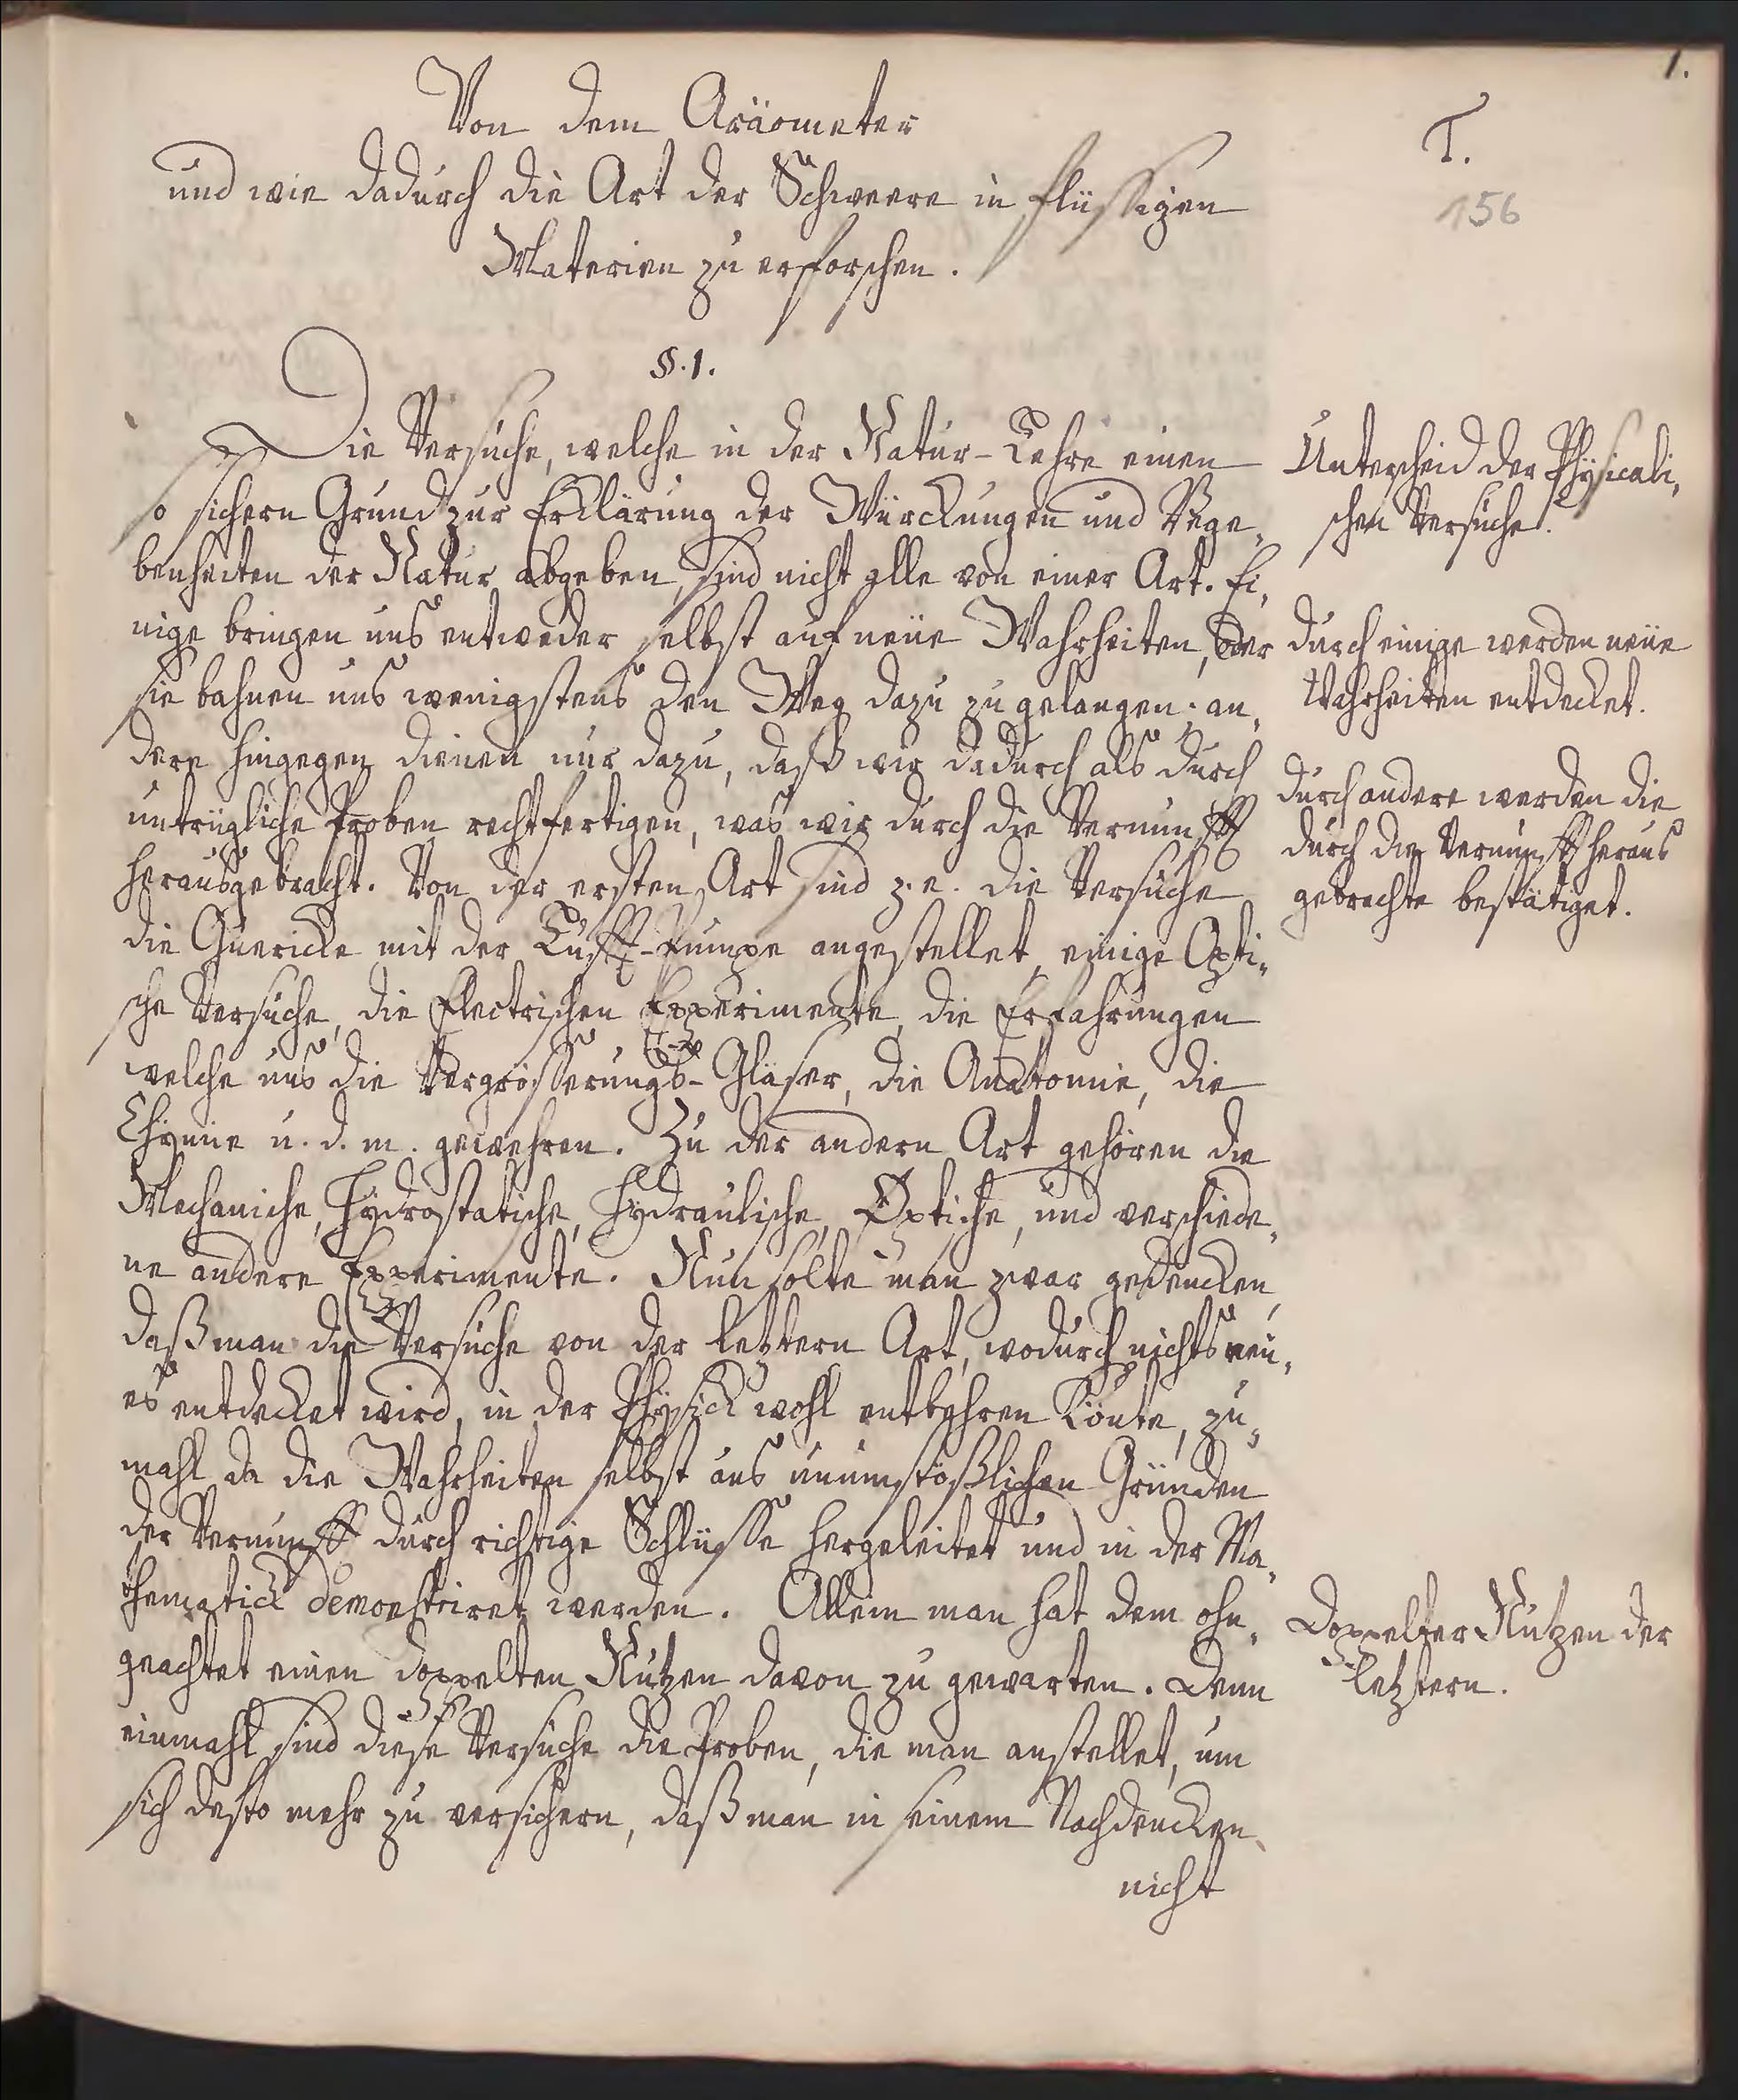 1.
Von dem Aräometer
T.
und wie dadurch die Art der Schweere in flüssigen
156
Materien zu erforschen.
§. 1.
Die Versuche, welche in der Natur-Lehre einen
so sichern Grund zur Erklärung der Würckungen und Bege„
benheiten der Natur abgeben, sind nicht alle von einer Art. Ei„
nige bringen uns entweder selbst auf neüe Wahrheiten, oder
sie bahnen uns wenigstens den Weg dazu zu gelangen; an„
dere hingegen dienen nur dazu, daß wir dadurch als durch
untrügliche Proben rechtfertigen, was wir durch die Vernunfft
herausgebracht. Von der ersten Art sind z. e. die Versuche
die Guericke mit der Lufft-Pumpe angestellet, einige Opti„
sche Versuche, die Electrischen Experimente, die Erfahrungen
welche uns die Vergrösserungs-Gläser, die Anatomie, die
Chymie u. d. m. gewehren. Zu der andern Art gehören die
Mechaniche, Hydrostatische, Hydraulische, Optiche, und verschiede„
ne andere Experimente. Nun solte man zwar gedencken,
daß man die Versuche von der letztern Art, wodurch nichts neu„
es entdecket wird, in der Physick wohl entbehren könte, zu„
mahl da die Wahrheiten selbst aus unumstößlichen Gründen
der Vernunfft durch richtige Schlüsse hergeleitet und in der Ma„
thematick demonstriret werden. Allein man hat dem ohn„
geachtet einen doppelten Nutzen davon zu gewarten. Denn
einmahl sind diese Versuche die Proben, die man anstellet, um
sich desto mehr zu versichern, daß man in seinem Nachdencken
nicht
Unterscheid der Physicali„
schen Versuche.
durch einige werden neüe
Wahrheiten entdecket.
durch andere werden die
durch die Vernunfft heraus
gebrachte bestätiget.
Doppelter Nutzen der
letztern.